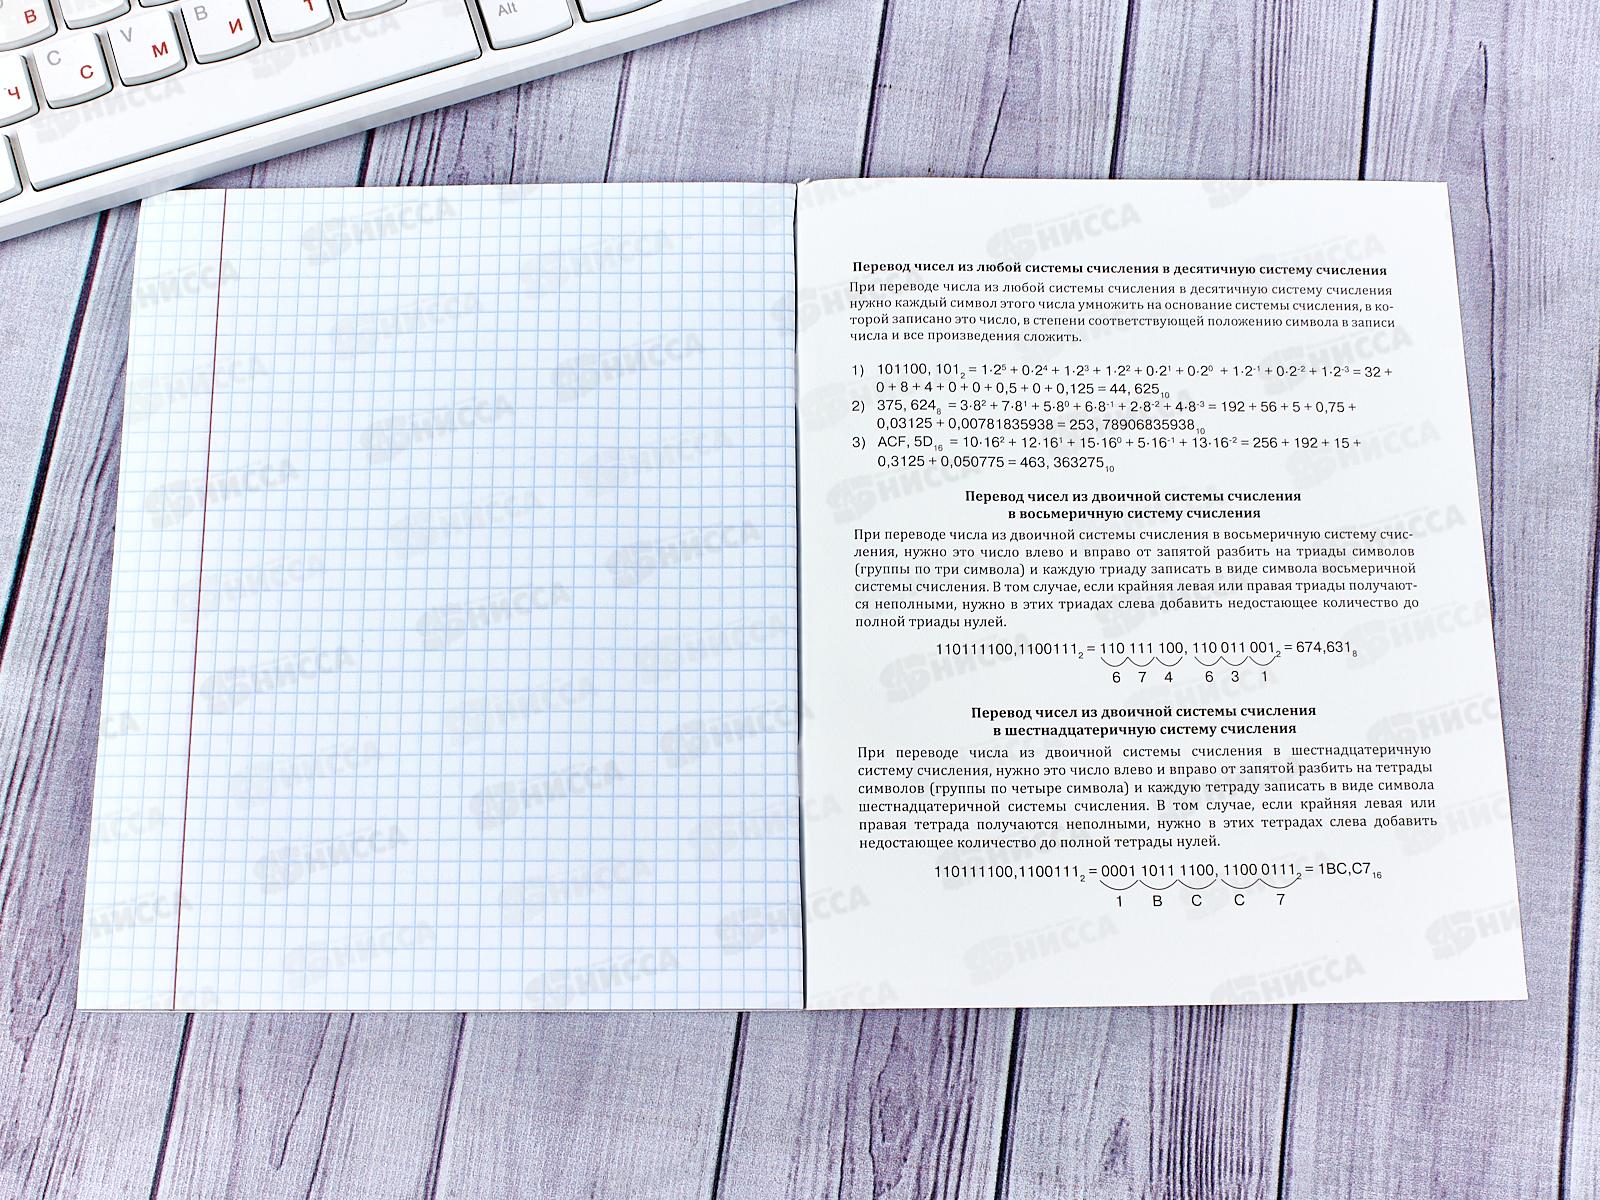 В
И
Т
Alt
V
М
C
С
Ч
Перевод чисел из любой системы счисления в десятичную систему счисления
При переводе числа из любой системы счисления в десятичную систему счисления
нужно каждый символ этого числа умножить на основание системы счисления, в ко-
торой записано это число, в степени соответствующей положению символа в записи
числа и все произведения сложить.
1) 101100, 101₂ = 1·2⁵ + 0·2⁴ + 1·2³ + 1·2² + 0·2¹ + 0·2⁰ + 1·2⁻¹ + 0·2⁻² + 1·2⁻³ = 32 +
0 + 8 + 4 + 0 + 0 + 0,5 + 0 + 0,125 = 44, 625₁₀
2) 375, 624₈ = 3·8² + 7·8¹ + 5·8⁰ + 6·8⁻¹ + 2·8⁻² + 4·8⁻³ = 192 + 56 + 5 + 0,75 +
0,03125 + 0,00781835938 = 253, 78906835938₁₀
3) ACF, 5D₁₆ = 10·16² + 12·16¹ + 15·16⁰ + 5·16⁻¹ + 13·16⁻² = 256 + 192 + 15 +
0,3125 + 0,050775 = 463, 363275₁₀
Перевод чисел из двоичной системы счисления
в восьмеричную систему счисления
При переводе числа из двоичной системы счисления в восьмеричную систему счис-
ления, нужно это число влево и вправо от запятой разбить на триады символов
(группы по три символа) и каждую триаду записать в виде символа восьмеричной
системы счисления. В том случае, если крайняя левая или правая триады получают-
ся неполными, нужно в этих триадах слева добавить недостающее количество до
полной триады нулей.
110111100,1100111₂ = 110 111 100, 110 011 001₂ = 674,631₈
6 7 4 6 3 1
Перевод чисел из двоичной системы счисления
в шестнадцатеричную систему счисления
При переводе числа из двоичной системы счисления в шестнадцатеричную
систему счисления, нужно это число влево и вправо от запятой разбить на тетрады
символов (группы по четыре символа) и каждую тетраду записать в виде символа
шестнадцатеричной системы счисления. В том случае, если крайняя левая или
правая тетрада получаются неполными, нужно в этих тетрадах слева добавить
недостающее количество до полной тетрады нулей.
110111100,1100111₂ = 0001 1011 1100, 1100 0111₂ = 1BC,C7₁₆
1 B C C 7